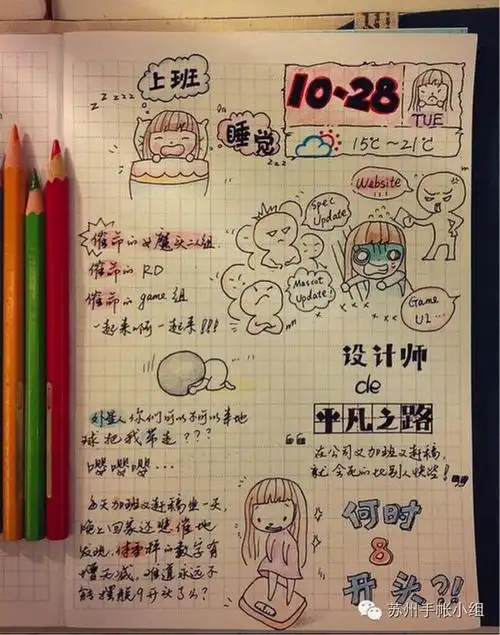 上班
睡觉
10-28
TUE
15℃~21℃
zzzzz
zzz
Website
Spec
Update
Mascot
Update!
Game
UI...
催命的女魔头二人组
催命的 RD
催命的 game 组
一起来啊一起来!!!
设计师
de
平凡之路
外星人你们可以不可以来地
球把我带走???
嘤嘤嘤...
“在公司又加班又赶稿,
就会死的比别人快些!”
每天加班又赶稿坐一天,
晚上回家还悲催地
发现,体重秤的数字有
增无减,难道永远不
能摆脱9开头了么?
何时
8
开头?!
苏州手帐小组